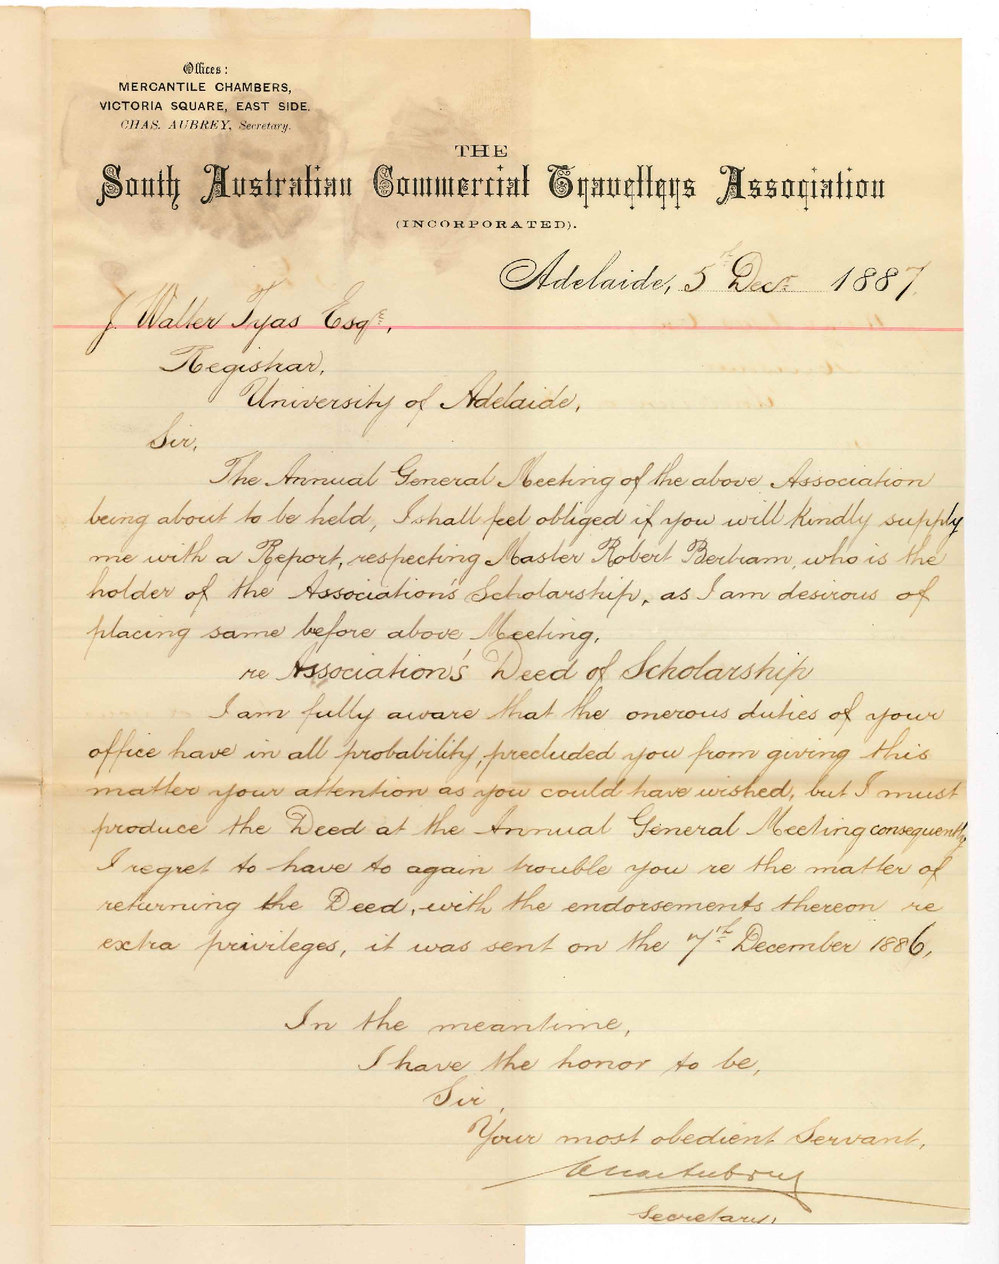 Offices:
MERCANTILE CHAMBERS,
VICTORIA SQUARE, EAST SIDE.
CHAS. AUBREY, Secretary.
THE
South Australian Commercial Travellers Association
(INCORPORATED).
Adelaide, 5th Decr 1887.
J. Walter Tyas Esqre,
Registrar,
University of Adelaide,
Sir,
The Annual General Meeting of the above Association
being about to be held, I shall feel obliged if you will kindly supply
me with a Report, respecting Master Robert Bertram, who is the
holder of the Association's Scholarship, as I am desirous of
placing same before above Meeting.
re Association's Deed of Scholarship
I am fully aware that the onerous duties of your
office have in all probability, precluded you from giving this
matter your attention as you could have wished, but I must
produce the Deed at the Annual General Meeting consequently
I regret to have to again trouble you re the matter of
returning the Deed, with the endorsements thereon re
extra privileges, it was sent on the 7th December 1886.
In the meantime,
I have the honor to be,
Sir,
Your most obedient Servant,
Chas Aubrey
Secretary.